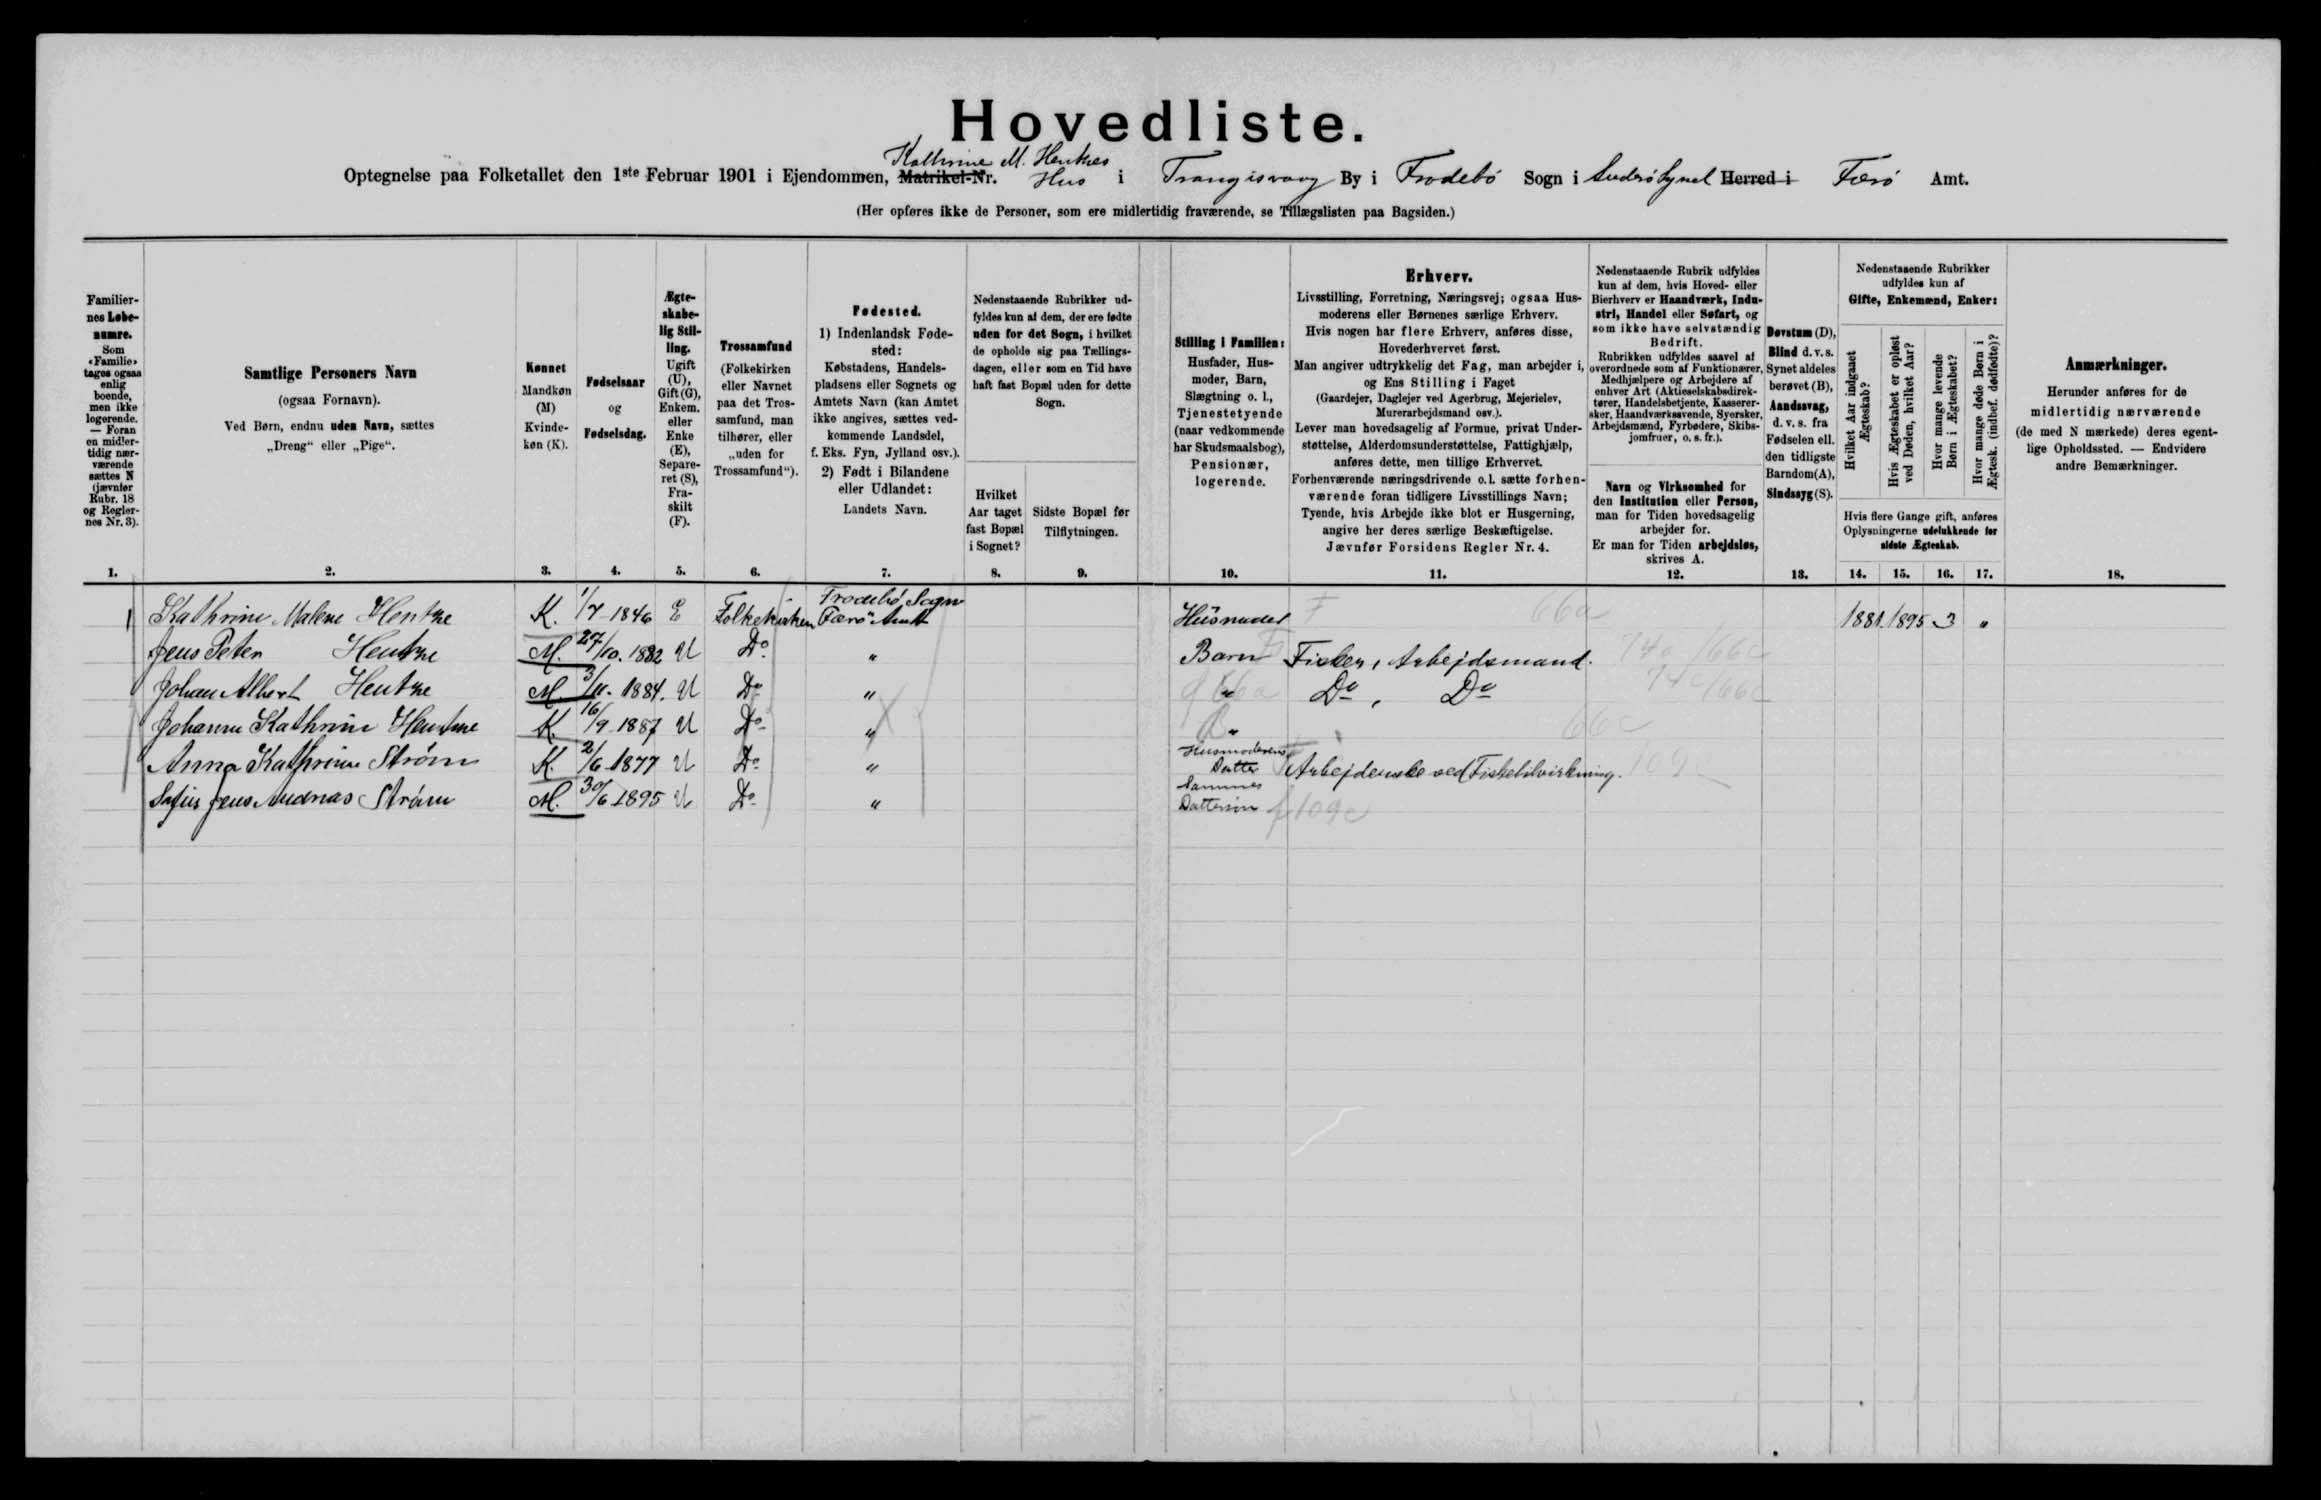 Hovedliste.
Kathrine M. Hentzes
Optegnelse paa Folketallet den 1ste Februar 1901 i Ejendommen, Matrikel-Nr. Hus i Trangisvaag By i Frodebö Sogn i Suderö Syssel Herred i Færö Amt.
(Her opføres ikke de Personer, som ere midlertidig fraværende, se Tillægslisten paa Bagsiden.)
Familiernes Løbenumre.
Som «Familie» tages ogsaa enlig boende, men ikke logerende. — Foran en midlertidig nærværende sættes N (jævnfør Rubr. 18 og Reglernes Nr. 3).
Samtlige Personers Navn
(ogsaa Fornavn).
Ved Børn, endnu uden Navn, sættes
„Dreng“ eller „Pige“.
Kønnet
Mandkøn (M)
Kvindekøn (K).
Fødselsaar
og
Fødselsdag.
Ægteskabelig Stilling.
Ugift (U), Gift (G), Enkem. eller Enke (E), Separeret (S), Fraskilt (F).
Trossamfund
(Folkekirken eller Navnet paa det Trossamfund, man tilhører, eller „uden for Trossamfund“).
Fødested.
1) Indenlandsk Fødested:
Købstadens, Handelspladsens eller Sognets og Amtets Navn (kan Amtet ikke angives, sættes vedkommende Landsdel, f. Eks. Fyn, Jylland osv.).
2) Født i Bilandene eller Udlandet:
Landets Navn.
Nedenstaaende Rubrikker udfyldes kun af dem, der ere fødte uden for det Sogn, i hvilket de opholde sig paa Tællingsdagen, eller som en Tid have haft fast Bopæl uden for dette Sogn.
Hvilket Aar taget fast Bopæl i Sognet?
Sidste Bopæl før Tilflytningen.
Stilling i Familien:
Husfader, Husmoder, Barn, Slægtning o. l., Tjenestetyende (naar vedkommende har Skudsmaalsbog), Pensionær, logerende.
Erhverv.
Livsstilling, Forretning, Næringsvej; ogsaa Husmoderens eller Børnenes særlige Erhverv.
Hvis nogen har flere Erhverv, anføres disse, Hovederhvervet først.
Man angiver udtrykkelig det Fag, man arbejder i, og Ens Stilling i Faget
(Gaardejer, Daglejer ved Agerbrug, Mejerielev, Murerarbejdsmand osv.).
Lever man hovedsagelig af Formue, privat Understøttelse, Alderdomsunderstøttelse, Fattighjælp, anføres dette, men tillige Erhvervet.
Forhenværende næringsdrivende o. l. sætte forhenværende foran tidligere Livsstillings Navn; Tyende, hvis Arbejde ikke blot er Husgerning, angive her deres særlige Beskæftigelse.
Jævnfør Forsidens Regler Nr. 4.
Nedenstaaende Rubrik udfyldes kun af dem, hvis Hoved- eller Bierhverv er Haandværk, Industri, Handel eller Søfart, og som ikke have selvstændig Bedrift.
Rubrikken udfyldes saavel af overordnede som af Funktionærer, Medhjælpere og Arbejdere af enhver Art (Aktieselskabsdirektører, Handelsbetjente, Kasserersker, Haandværkssvende, Syersker, Arbejdsmænd, Fyrbødere, Skibsjomfruer, o. s. fr.).
Navn og Virksomhed for den Institution eller Person, man for Tiden hovedsagelig arbejder for.
Er man for Tiden arbejdsløs, skrives A.
Døvstum (D),
Blind d. v. s. Synet aldeles berøvet (B),
Aandssvag, d. v. s. fra Fødselen ell. den tidligste Barndom (A),
Sindssyg (S).
Nedenstaaende Rubrikker udfyldes kun af
Gifte, Enkemænd, Enker:
Hvilket Aar indgaaet Ægteskab?
Hvis Ægteskabet er opløst ved Døden, hvilket Aar?
Hvor mange levende Børn i Ægteskabet?
Hvor mange døde Børn i Ægtesk. (indbef. dødfødte)?
Hvis flere Gange gift, anføres Oplysningerne udelukkende for sidste Ægteskab.
Anmærkninger.
Herunder anføres for de midlertidig nærværende (de med N mærkede) deres egentlige Opholdssted. — Endvidere andre Bemærkninger.
1. 2. 3. 4. 5. 6. 7. 8. 9. 10. 11. 12. 13. 14. 15. 16. 17. 18.
1 Kathrine Malene Hentze K. 1/7 1846 E Folkekirken Frodebö Sogn Færö Amt Husmoder F 66a 1881 1895 3 „
Jens Peter Hentze M. 27/10. 1882 U Do „ Barn Fisker, Arbejdsmand. 74c/66c
Johan Albert Hentze M. 3/11. 1884. U Do „ „ 66a Do, Do 74c/66c
Johanne Kathrine Hentze K. 16/9 1887 U Do „ „ 66c
Anna Kathrine Strøm K. 2/6 1877 U Do „ Husmoderens Datter Arbejderske ved Fisketilvirkning. 109c
Jens Andreas Strøm M. 30/6 1895 U Do „ Sammes Dattersøn f 109c